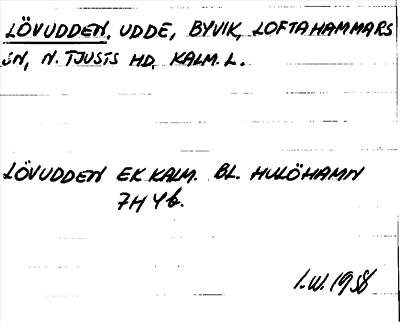 LÖVUDDEN, UDDE, BYVIK, LOFTAHAMMARS
SN, N. TJUSTS HD, KALM. L.
LÖVUDDEN EK. KALM. BL. HULÖHAMN
7H 4b.
I.W. 1958